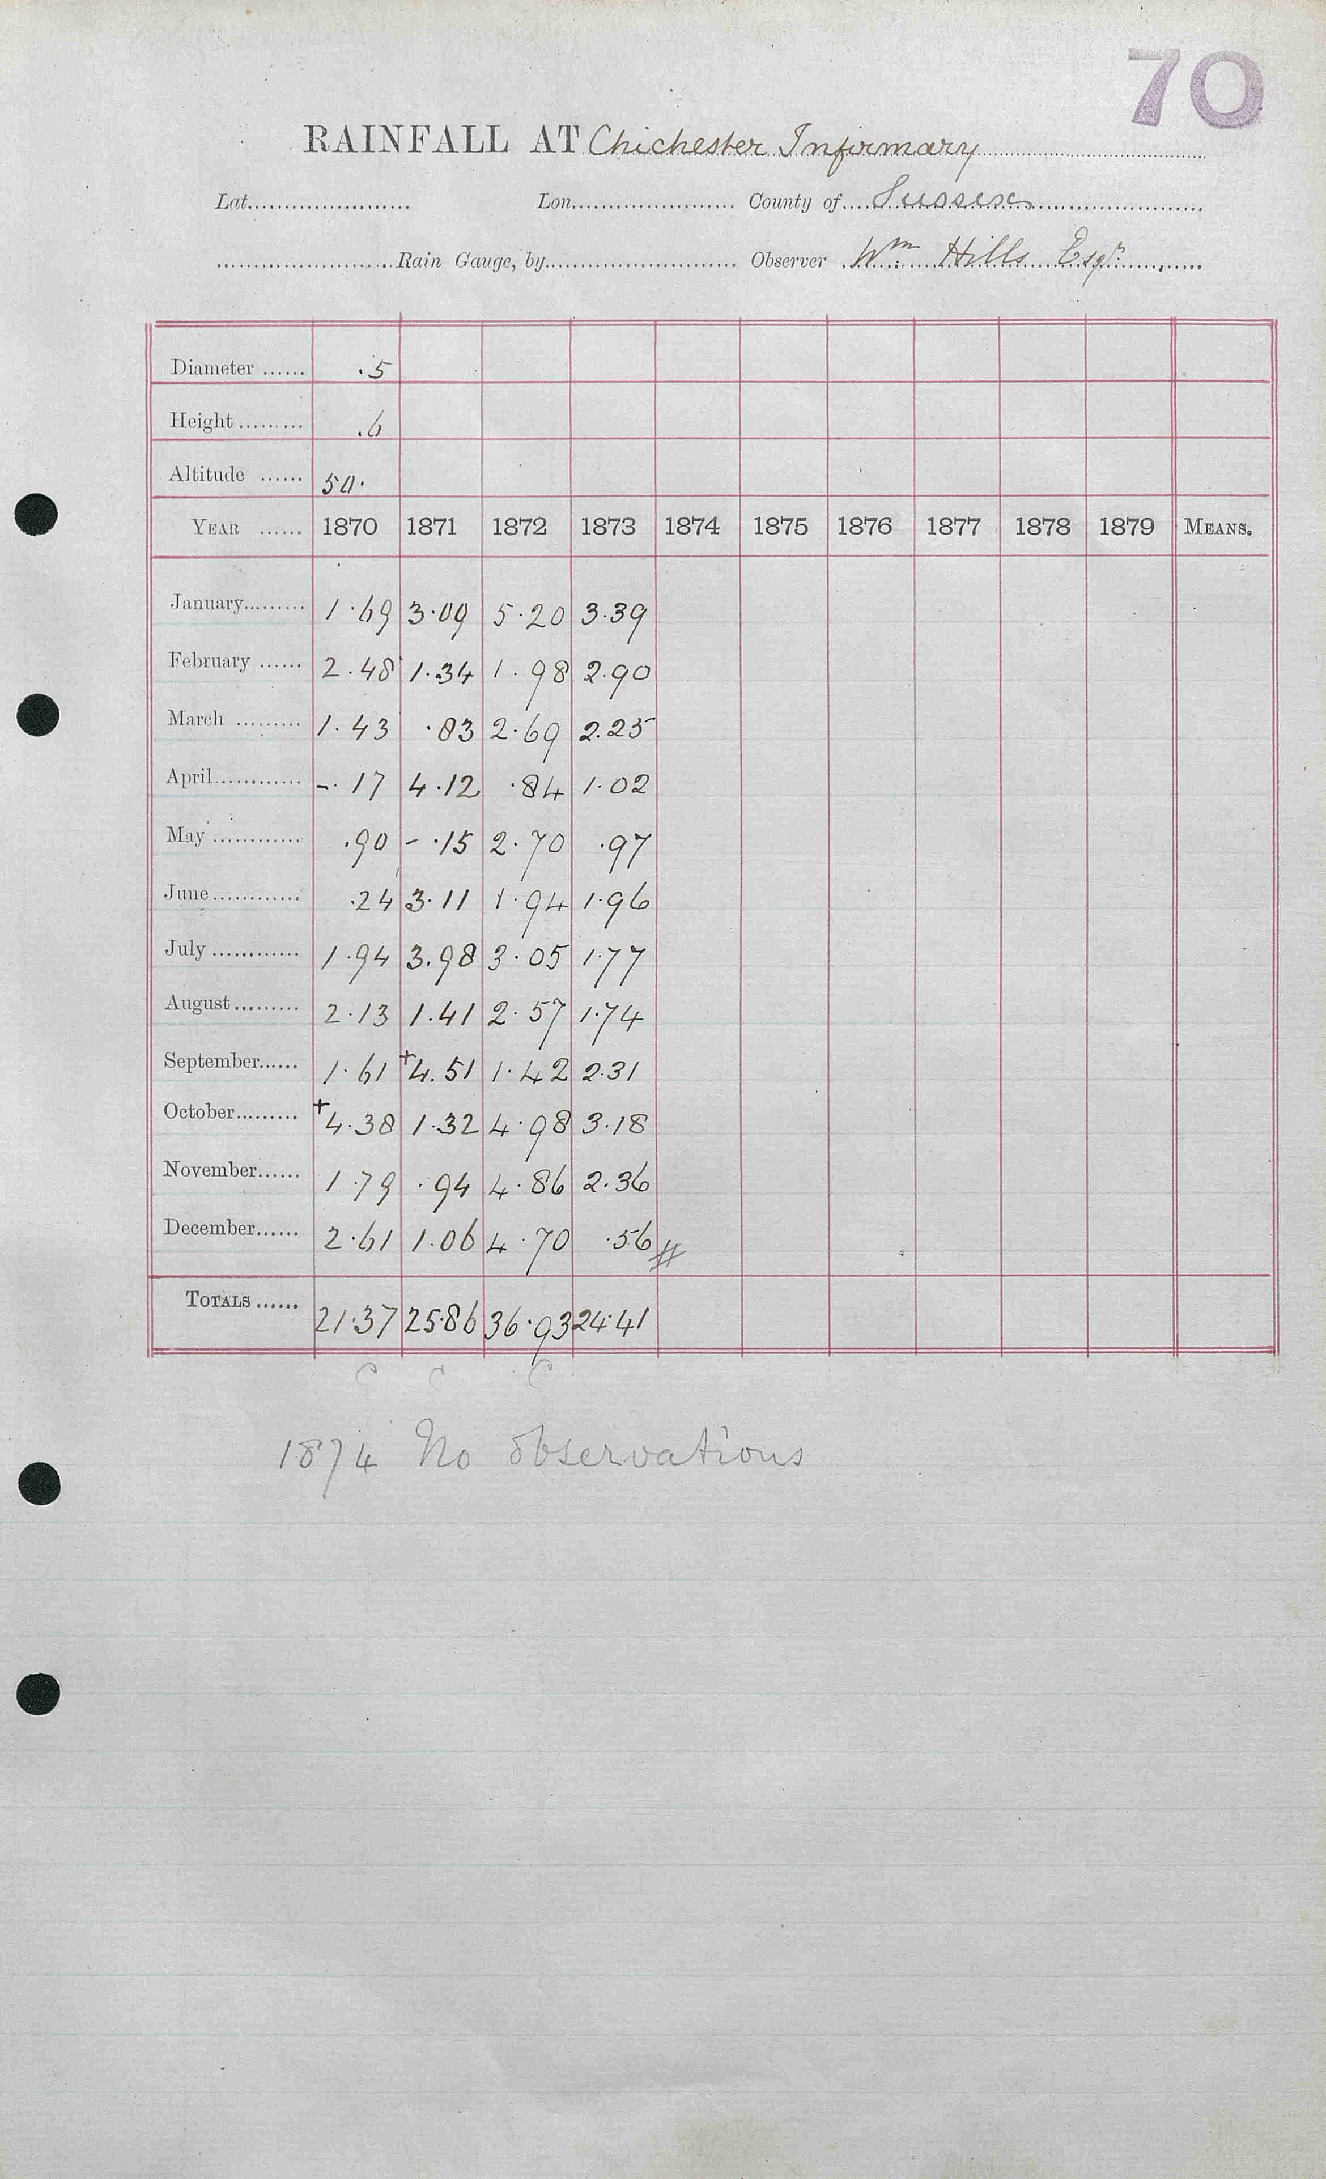 70
RAINFALL AT Chichester Infirmary
Lat. Lon. County of Sussex
Rain Gauge, by Observer Wm. Hills Esqr.
Diameter ...... .5
Height ......... .6
Altitude ...... 50.
YEAR ...... 1870 1871 1872 1873 1874 1875 1876 1877 1878 1879 MEANS.
January......... 1.69 3.09 5.20 3.39
February ...... 2.48 1.34 1.98 2.90
March ......... 1.43 .83 2.69 2.25
April............ -.17 4.12 .84 1.02
May ............ .90 - .15 2.70 .97
June............ .24 3.11 1.94 1.96
July ............ 1.94 3.98 3.05 1.77
August......... 2.13 1.41 2.57 1.74
September...... 1.61 +4.51 1.42 2.31
October......... +4.38 1.32 4.98 3.18
November...... 1.79 .94 4.86 2.36
December...... 2.61 1.06 4.70 .56 #
TOTALS ...... 21.37 25.86 36.93 24.41
C C C
1874 No observations